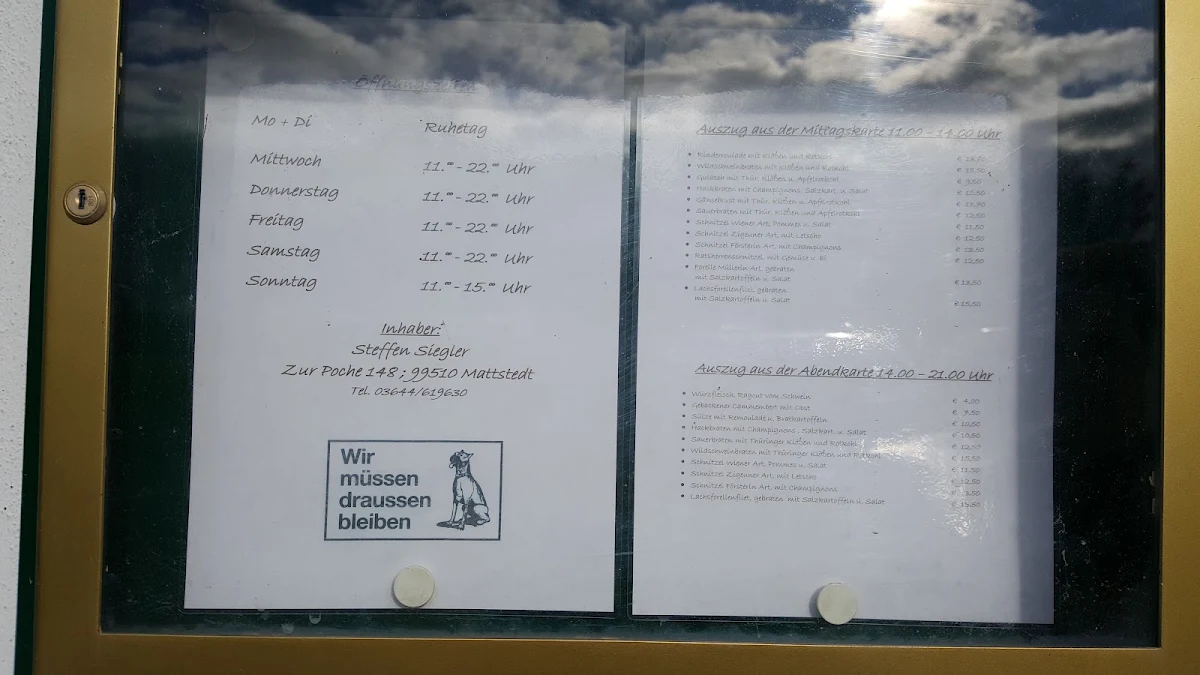 Öffnungszeiten
Mo + Di Ruhetag
Mittwoch 11.°° - 22.°° Uhr
Donnerstag 11.°° - 22.°° Uhr
Freitag 11.°° - 22.°° Uhr
Samstag 11.°° - 22.°° Uhr
Sonntag 11.°° - 15.°° Uhr
Inhaber:
Steffen Siegler
Zur Poche 148 ; 99510 Mattstedt
Tel. 03644/619630
Wir
müssen
draussen
bleiben
Auszug aus der Mittagskarte 11.00 - 14.00 Uhr
Rinderroulade mit Klößen und Rotkohl
Wildschweinbraten mit Klößen und Rotkohl
Gulasch mit Thür. Klößen u. Apfelrotkohl € 9,50
Hackbraten mit Champignons, Salzkart. u. Salat
Gänsebrust mit Thür. Klößen u. Apfelrotkohl
Sauerbraten mit Thür. Klößen und Apfelrotkohl € 12,50
Schnitzel Wiener Art, Pommes u. Salat € 11,50
Schnitzel Zigeuner Art, mit Letscho € 12,50
Schnitzel Försterin Art, mit Champignons € 12,50
Ratsherrenschnitzel, mit Gemüse u. Ei € 12,50
Forelle Müllerin Art, gebraten
mit Salzkartoffeln u. Salat € 13,50
Lachsforellenfilet, gebraten
mit Salzkartoffeln u. Salat € 15,50
Auszug aus der Abendkarte 14.00 - 21.00 Uhr
Würzfleisch, Ragout vom Schwein € 4,00
Gebackener Camembert mit Obst € 7,50
Sülze mit Remoulade u. Bratkartoffeln € 10,50
Hackbraten mit Champignons , Salzkart. u. Salat € 10,50
Sauerbraten mit Thüringer Klößen und Rotkohl € 12,50
Wildschweinbraten mit Thüringer Klößen und Rotkohl € 15,50
Schnitzel Wiener Art, Pommes u. Salat € 11,50
Schnitzel Zigeuner Art, mit Letscho € 12,50
Schnitzel Försterin Art, mit Champignons
Lachsforellenfilet, gebraten mit Salzkartoffeln u. Salat € 15,50